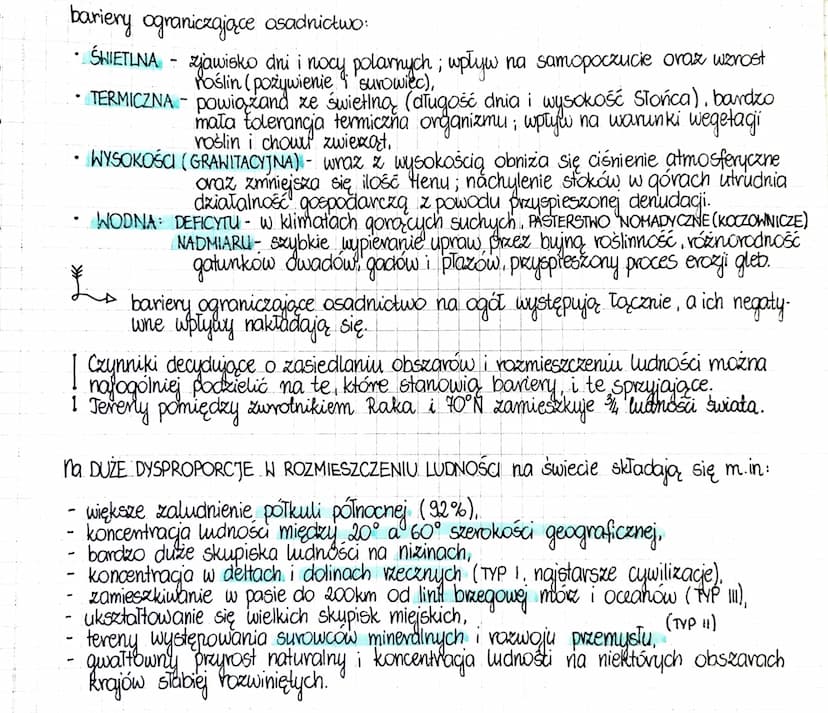 bariery ograniczające osadnictwo:
• ŚWIETLNA - zjawisko dni i nocy polarnych; wpływ na samopoczucie oraz wzrost
roślin (pożywienie i surowiec),
• TERMICZNA - powiązana ze świetlną (długość dnia i wysokość Słońca), bardzo
mała tolerancja termiczna organizmu; wpływ na warunki wegetacji
roślin i chowu zwierząt,
• WYSOKOŚCI (GRAWITACYJNA) - wraz z wysokością obniża się ciśnienie atmosferyczne
oraz zmniejsza się ilość tlenu; nachylenie stoków w górach utrudnia
działalność gospodarczą z powodu przyspieszonej denudacji.
• WODNA: DEFICYTU - w klimatach gorących suchych, PASTERSTWO NOMADYCZNE (KOCZOWNICZE)
NADMIARU - szybkie wypieranie upraw przez bujną roślinność, różnorodność
gatunków owadów, gadów i płazów, przyspieszony proces erozji gleb.
bariery ograniczające osadnictwo na ogół występują łącznie, a ich negaty-
wne wpływy nakładają się.
! Czynniki decydujące o zasiedlaniu obszarów i rozmieszczeniu ludności można
najogólniej podzielić na te, które stanowią bariery, i te sprzyjające.
! Tereny pomiędzy zwrotnikiem Raka i 70°N zamieszkuje ¾ ludności świata.
na DUŻE DYSPROPORCJE W ROZMIESZCZENIU LUDNOŚCI na świecie składają się m.in:
- większe zaludnienie półkuli północnej (92%),
- koncentracja ludności między 20° a 60° szerokości geograficznej,
- bardzo duże skupiska ludności na nizinach,
- koncentracja w deltach i dolinach rzecznych (TYP I, najstarsze cywilizacje),
- zamieszkiwanie w pasie do 200km od linii brzegowej mórz i oceanów (TYP III),
- ukształtowanie się wielkich skupisk miejskich,
(TYP II)
- tereny występowania surowców mineralnych i rozwoju przemysłu,
- gwałtowny przyrost naturalny i koncentracja ludności na niektórych obszarach
krajów słabiej rozwiniętych.